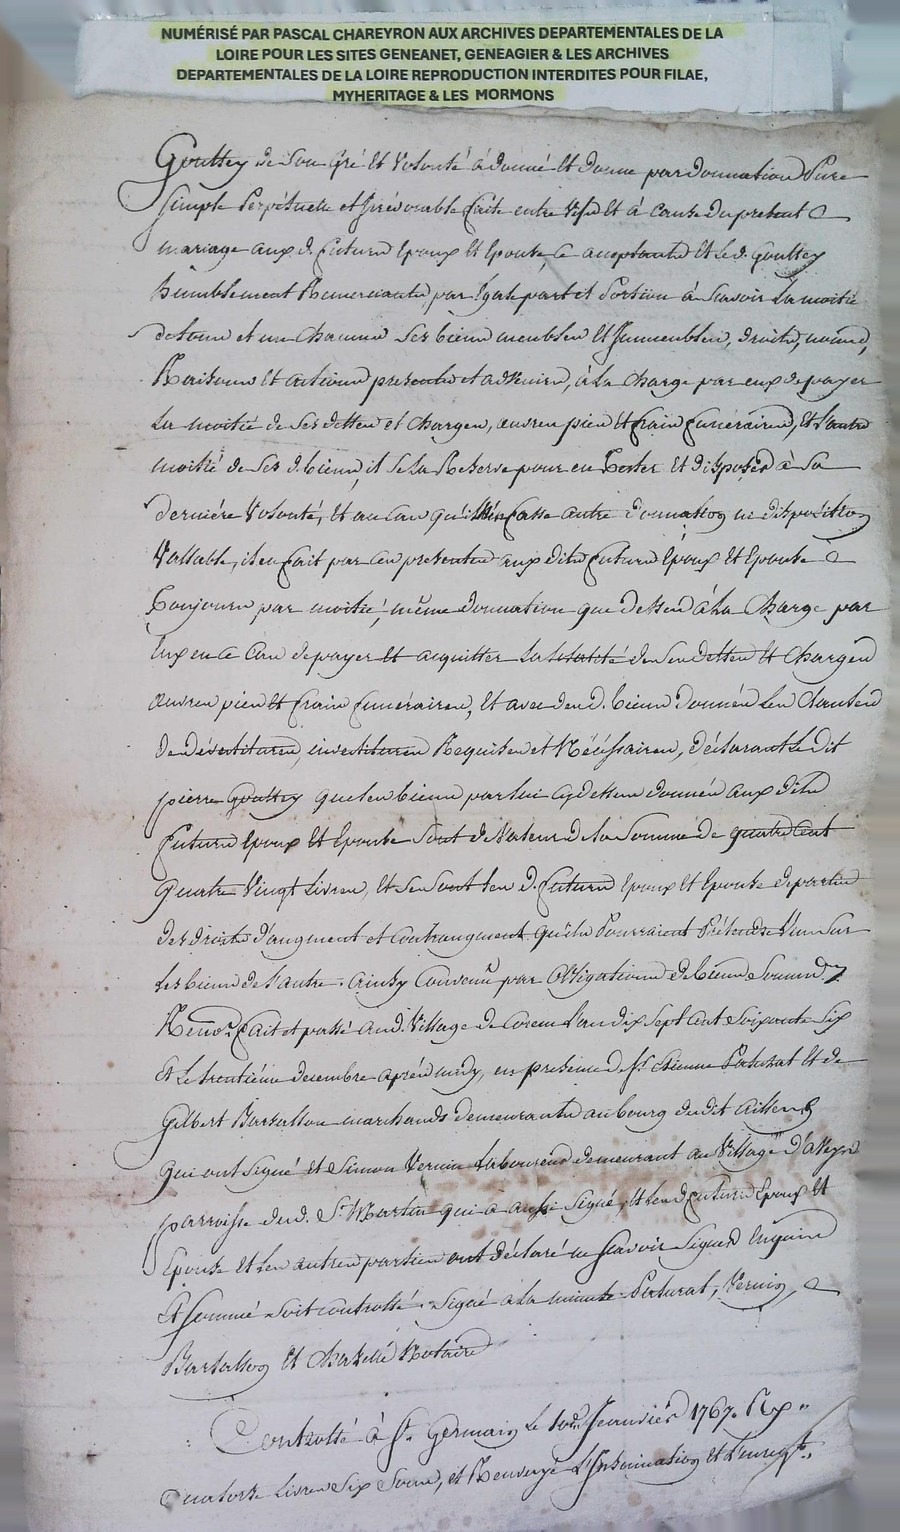 NUMÉRISÉ PAR PASCAL CHAREYRON AUX ARCHIVES DEPARTEMENTALES DE LA
LOIRE POUR LES SITES GENEANET, GENEAGIER & LES ARCHIVES
DEPARTEMENTALES DE LA LOIRE REPRODUCTION INTERDITES POUR FILAE,
MYHERITAGE & LES MORMONS
Gouttey de son gré et volonté a donné et donne par donnation pure
simple perpétuelle et irrévocable faite entre vifs et à cause du présent
mariage aux d. futurs epoux et epouse, ce acceptants et led. Gouttey
humblement remerciants, par égale part et portion à scavoir la moitié
de tous et un chacuns ses biens meubles et immeubles, droits, noms,
raisons et actions presents et advenirs, à la charge par eux de payer
la moitié de ses dettes et charges, œuvres pies et frais funéraires, et l'autre
moitié de ses d. biens, il se la reserve pour en tester et disposer à sa
dernière volonté, et au cas qu'il n'en fasse autre donnation ni disposition
vallable, il en fait par ces presentes aux dits futurs epoux et epouse
toujours par moitié, même donnation que dessus à la charge par
eux en ce cas de payer et acquitter la totalité de ses dettes et charges
œuvres pies et frais funéraires, et avec des d. biens donnés les
devestitures, investitures requises et nécéssaires, déclarant ledit
pierre Gouttey que les biens par lui cydessus donnés aux dits
futurs epoux et epouse sont de valeur de la somme de quatre cent
quatre vingt livres, et se sont les d. futurs epoux et epouse departis
des droits d'augment et contraugment qu'ils pourraient prétendre l'un sur
les biens de l'autre. Ainsy convenu par obligations de biens soumis.
Renon. fait et passé aud. village de l'an dix sept cent soixante six
et le trentième decembre après midy, en présence de Sr. etienne Paturat et de
Gilbert Barsallon marchands demeurants au bourg dudit
qui ont signé et Simon Vernin laboureur demeurant au village
parroisse dud. St. Martin qui a aussi signé, et les d. futurs epoux et
epouse et les autres parties ont déclaré ne scavoir signer enquis
et sommé soit controllé. signé à la minute Paturat, Vernin,
Barsallon et notaire
Controllé à St. Germain le janvier 1767. Rx.
quatorze livres six sous, et renvoyé l'insinuation et